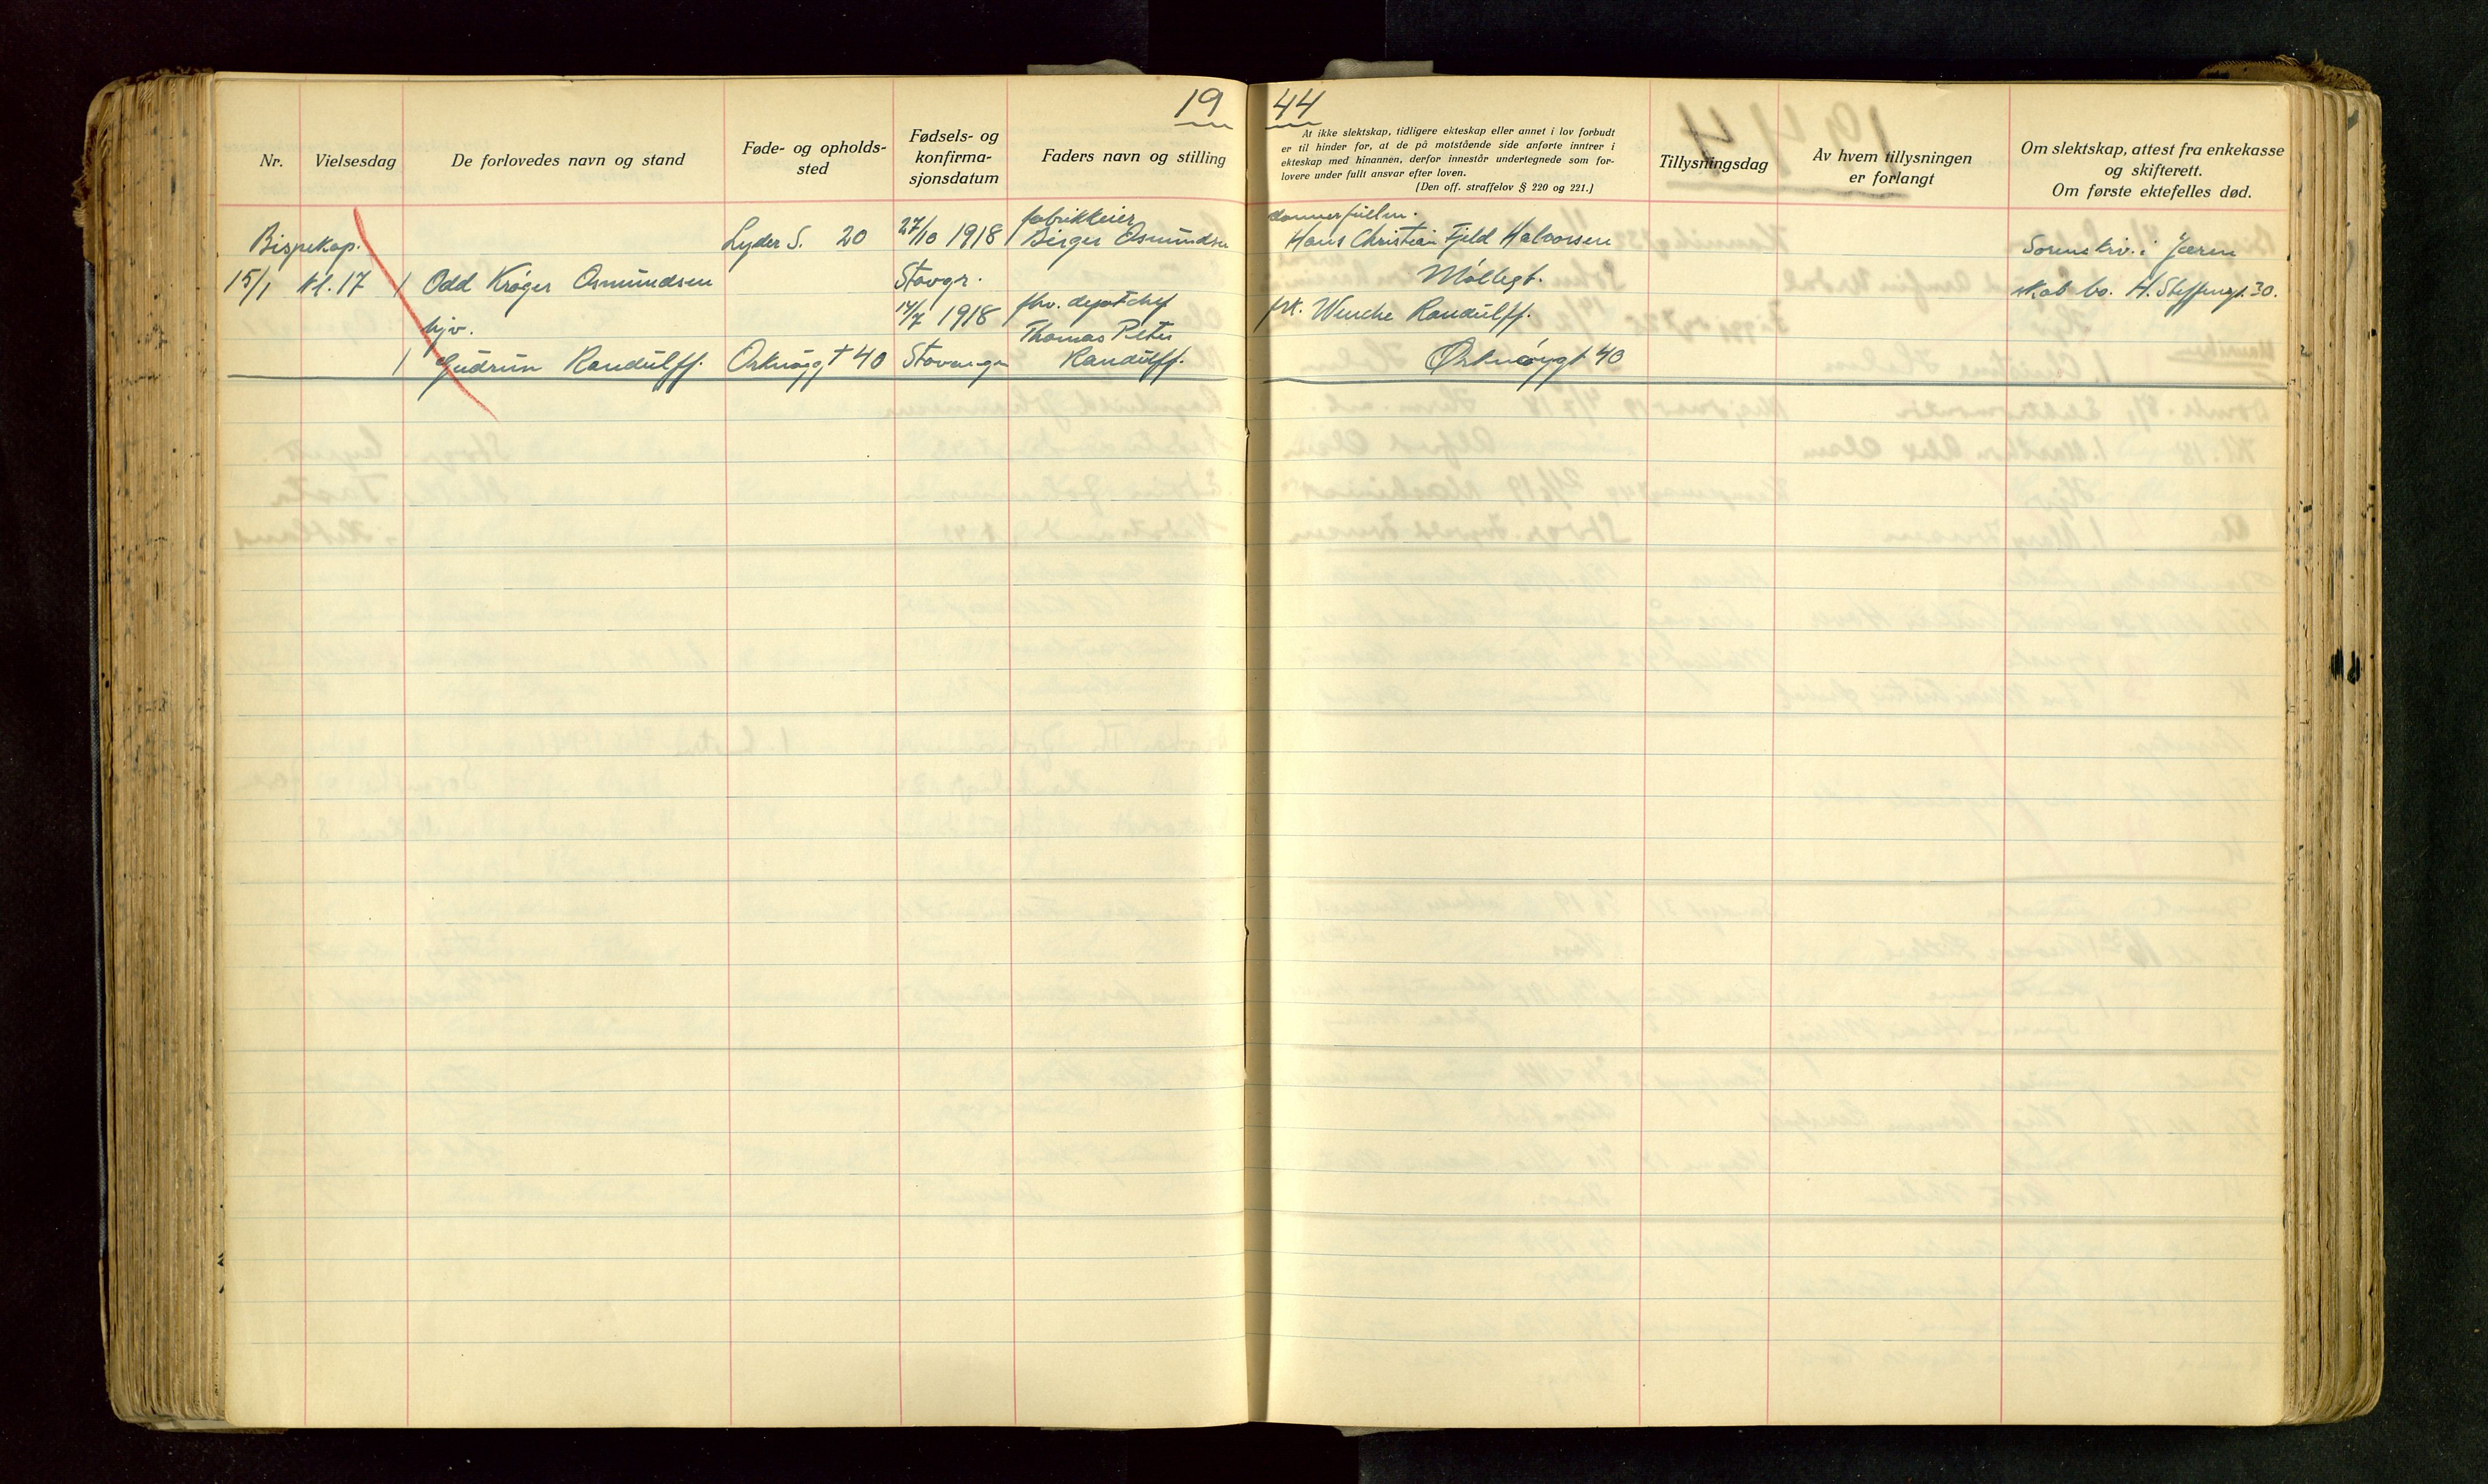 19 44
Nr.
Vielsesdag
De forlovedes navn og stand
Føde- og opholds-
sted
Fødsels- og
konfirma-
sjonsdatum
Faders navn og stilling
At ikke slektskap, tidligere ekteskap eller annet i lov forbudt
er til hinder for, at de på motstående side anførte inntrer i
ekteskap med hinannen, derfor innestår undertegnede som for-
lovere under fullt ansvar efter loven.
(Den off. straffelov § 220 og 221.)
Tillysningsdag
Av hvem tillysningen
er forlangt
Om slektskap, attest fra enkekasse
og skifterett.
Om første ektefelles død.
Bispekap.
15/1 kl. 17
1 Odd Krøger Osmundsen
Lyder S. 20
27/10 1918
Stavgr.
fabrikkeier
Birger Osmundsen
hjv.
1 Gudrun Randulff.
Orknøygt 40
14/7 1918
Stavanger
fhv.
Thomas Peter
Randulff.
Hans Christian Fjeld Halvorsen
Møllegt.
frk. Wenche Randulff.
Orknøygt 40
Sorenskriv. i Jæren
skab bo. H. Steffensgt. 30.